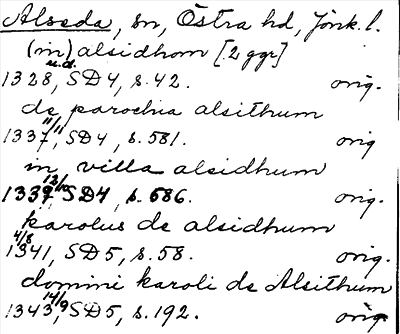 Alseda, sn, Östra hd, Jönk. l.
(in) alsidhom [2 ggr]
u.d. 1328, SD4, s. 42. orig.
de parochia alsithum
11/11 1337, SD4, s. 581. orig
in villa alsidhum
12/10 1339, SD4, s. 686. orig.
karolus de alsidhum
4/8 1341, SD5, s. 58. orig.
domini karoli de Alsithum
14/9 1343, SD5, s. 192. orig